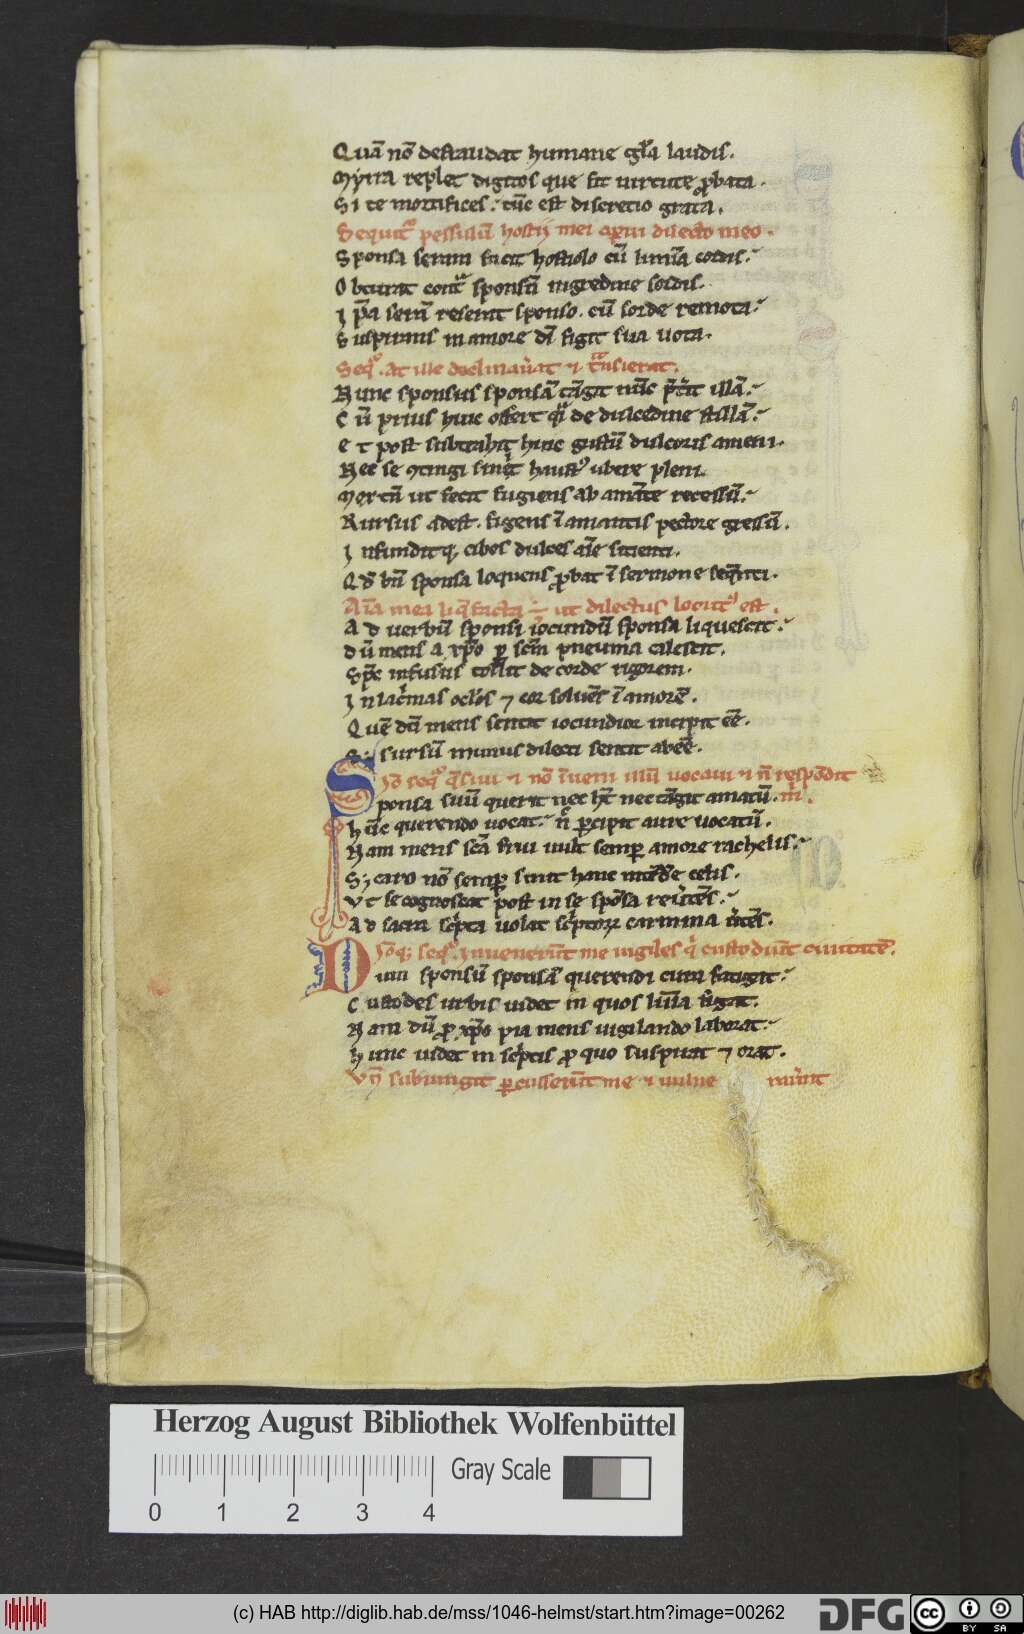 Quā nō defraudat humane gl̄a laudis.
Myrra replet digitos que fit uirtute ꝓbata.
Si te mortifices. tūc est discretio grata.
Sequit᷑ pessulū hostij mei aperui dilecto meo.
Sponsa seram facit hostiolo cū limīa cordis.
Obturat cont᷑ sponsū ingredine sordis.
Ip̄a serā reserat sponso. cū sorde remota.
Suspirans in amore dī figit sua uota.
Seqꝰ. At ille declinauat ⁊ t̄nsierat.
Nunc sponsus sponsā tāgit nūc p̄tit illā.
Cū prius huic offert q̄ de dulcedine stillā.
Et post subtrahit huic gustū dulcoris ameni.
Nec se ꝯtingi sinet haustꝰ ubere pleni
Mox tn̄ ut fecit fugiens ab amāte recessū.
Rursus adest. figens ī amantis pectore gressū.
Infundit qꝫ cibos dulces aīe sitienti.
Qd̄ bn̄ sponsa loquens ꝓbat ī sermone seq̄nti.
Aīa mea liq̄facta ÷ ut dilectus locutꝰ est.
Ad uerbū sponsi iocundū sponsa liquescit.
dū mens a xp̄o ꝑ scm̄ pneuma calescit.
Sp̄c infusus tollit de corde rigorem.
In lac̄mas oclos ⁊ cor soluēs ī amorē.
Quē dū mens sentit iocundior incipit eē.
Sꝫ sursū minus dilecti sentit abeē.
Seqꝰ q̄siui ⁊ nō īueni illū uocaui ⁊ n̄ respōdit m̄.
Sponsa suū querit nec hēt nec tāgit amatū.
hūc querendo uocat. n̄ ꝑcipit aure uocatū.
Nam mens scā frui uult semꝑ amore rachelis.
Sꝫ caro nō semꝑ sinit hanc intēdē celis.
Vt se cognoscat post in se spōsa reutēs.
Ad sacra sc̄pta uolat sc̄ptorꝝ carmina utēs.
seqꝰ. Inuenerūt me uigiles q̄ custodiūt ciuitatē.
Dum sponsū sponsā querendi cura fatigat.
Custodes urbis uidet in quos līīa nigat.
Nam dū ꝓ xp̄o pia mens uigilando laborat.
hunc uidet in sc̄ptis ꝓ quo suspirat ⁊ orat.
Vn̄ subiungit ꝑcusserūt me ⁊ uulne rauūt
Herzog August Bibliothek Wolfenbüttel
Gray Scale
0 1 2 3 4
(c) HAB http://diglib.hab.de/mss/1046-helmst/start.htm?image=00262
DFG
cc BY SA